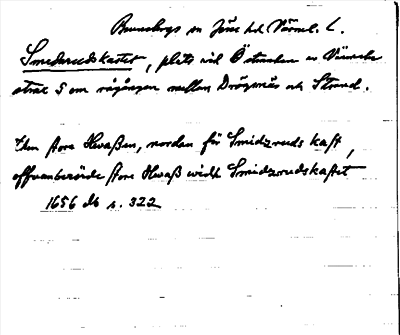 Brunskogs sn Jösse hd Värml. L.
Smedsrudskastet, plats vid Östunden av Värmeln
strax S om rågången mellan Drögsnäs och Strand.
Then store Hwaßen, nordan för Smidzruds kast,
offwanberörde store Hwaß widh Smidzrudskastet
1656 db s. 322